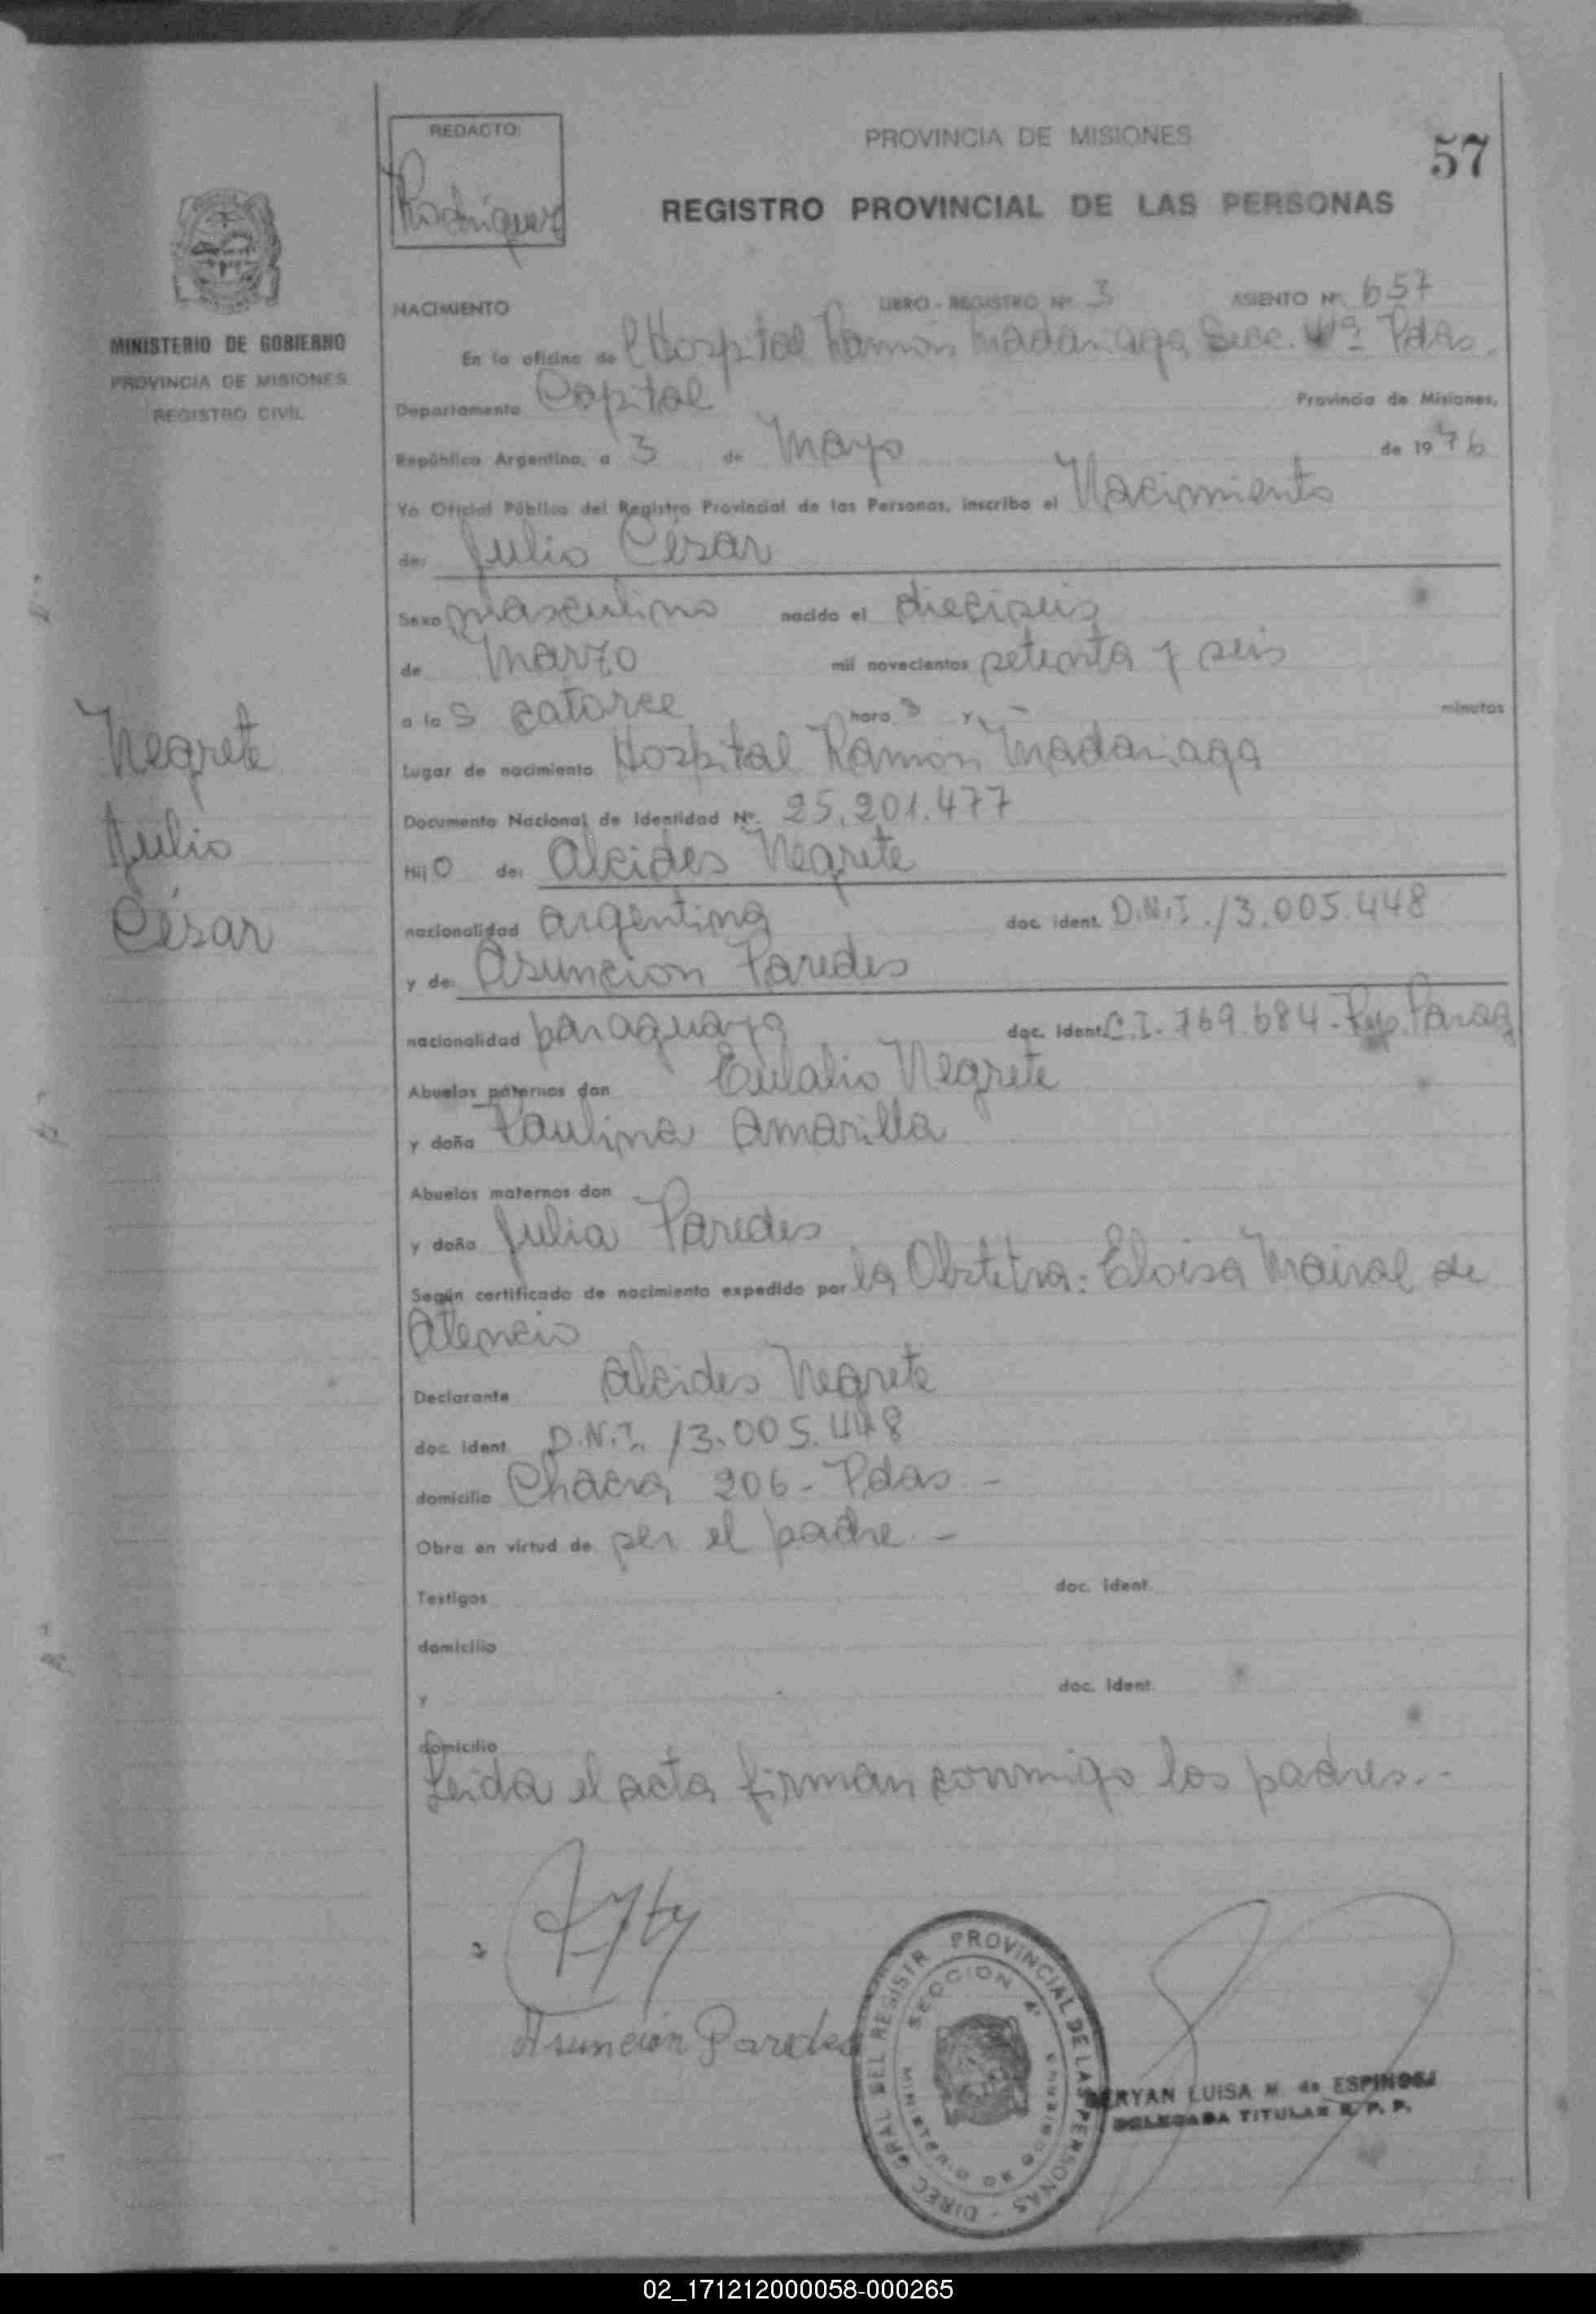 REDACTO:
Rodriguez
PROVINCIA DE MISIONES
57
REGISTRO PROVINCIAL DE LAS PERSONAS
MINISTERIO DE GOBIERNO
PROVINCIA DE MISIONES
REGISTRO CIVIL
NACIMIENTO LIBRO - REGISTRO Nº 3 ASIENTO Nº 657
En la oficina de l Hospital Ramón Madariaga Secc. 4ta Pdas.
Departamento Capital Provincia de Misiones,
República Argentina, a 3 de Mayo de 1976
Yo Oficial Público del Registro Provincial de las Personas, inscribo el Nacimiento
de: Julio César
Sexo masculino nacido el dieciseis
de Marzo mil novecientos setenta y seis
a las catorce horas y - minutos
Lugar de nacimiento Hospital Ramón Madariaga
Documento Nacional de Identidad Nº. 25.201.477
Negrete
Julio
César
Hijo de: Alcides Negrete
nacionalidad argentina doc. ident. D.N.I. 13.005.448
y de: Asuncion Paredes
nacionalidad paraguaya doc. ident. C.I. 769.684 - Rep. Parag
Abuelos paternos don Eulalio Negrete
y doña Paulina Amarilla
Abuelos maternos don -
y doña Julia Paredes
Según certificado de nacimiento expedido por la Obstetra: Eloisa Mairal de
Atencio
Declarante Alcides Negrete
doc. ident. D.N.I. 13.005.448
domicilio Chacra 206 - Pdas. -
Obra en virtud de ser el padre. -
Testigos doc. ident.
domicilio
y doc. ident.
domicilio
Leida el acta firman conmigo los padres. -
Asunción Paredes
DIREC. GRAL DEL REGISTR PROVINCIAL DE LAS PERSONAS
SECCION 4ª
MINISTERIO DE GOBIERNO
LUISA M. de ESPINOSA
DELEGADA TITULAR R. P. P.
02_171212000058-000265